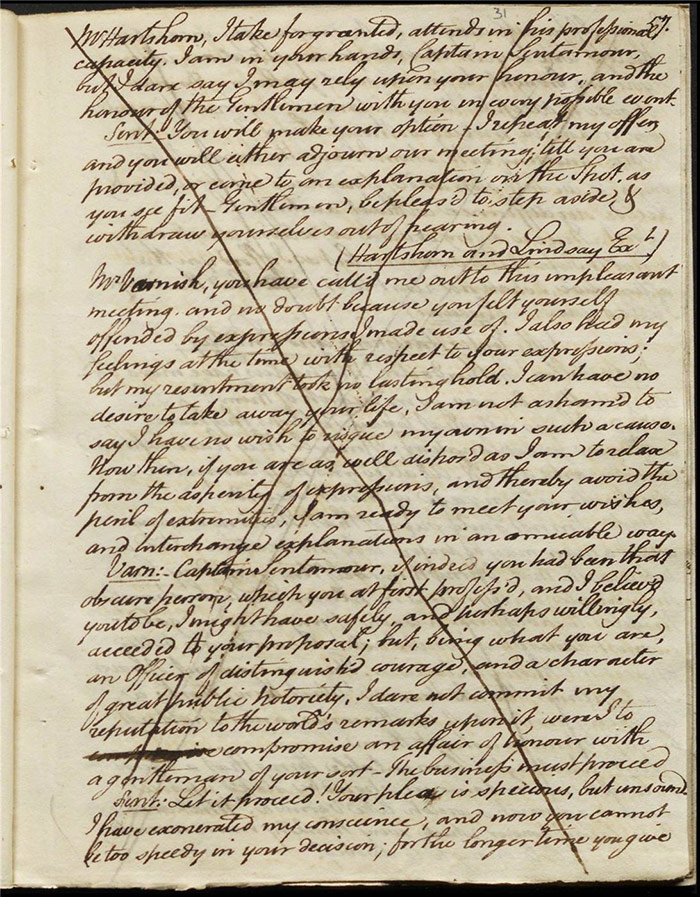 31
57.
Mr Hartshorn, I take for granted, attends in his professional
capacity. I am in your hands, Captain Sentamour,
but I dare say I may rely upon your honour, and the
honour of the Gentlemen with you in every possible event.
Sent: You will make your option - I repeat my offer,
and you will either adjourn our meeting, till you are
provided, or come to an explanation on the spot, as
you see fit - Gentlemen, be pleas'd to step aside, &
withdraw yourselves out of hearing.
(Hartshorn and Lindsay Ext)
Mr Varnish, you have call'd me out to this unpleasant
meeting. and no doubt because you felt yourself
offended by expressions I made use of. I also had my
feelings at the time with respect to your expressions;
but my resentment took no lasting hold. I can have no
desire to take away your life, I am not asham'd to
say I have no wish to risque my own in such a cause.
Now then, if you are as well dispos'd as I am to relax
from the asperity of expressions, and thereby avoid the
peril of extremities, I am ready to meet your wishes,
and interchange explanations in an amicable way.
Varn: - Captain Sentamour, if indeed you had been that
obscure person, which you at first profess'd, and I believ'd
you to be, I might have safely, and perhaps willingly,
acceded to your proposal; but, being what you are,
an Officer of distinguish'd courage, and a character
of great public notoriety, I dare not commit my
reputation to the world's remarks upon it were I to
compromise an affair of honour with
a gentleman of your sort - The business must proceed
Sent: Let it proceed! Your plea is specious, but unsound.
I have exonerated my conscience, and now you cannot
be too speedy in your decision; for the longer time you give